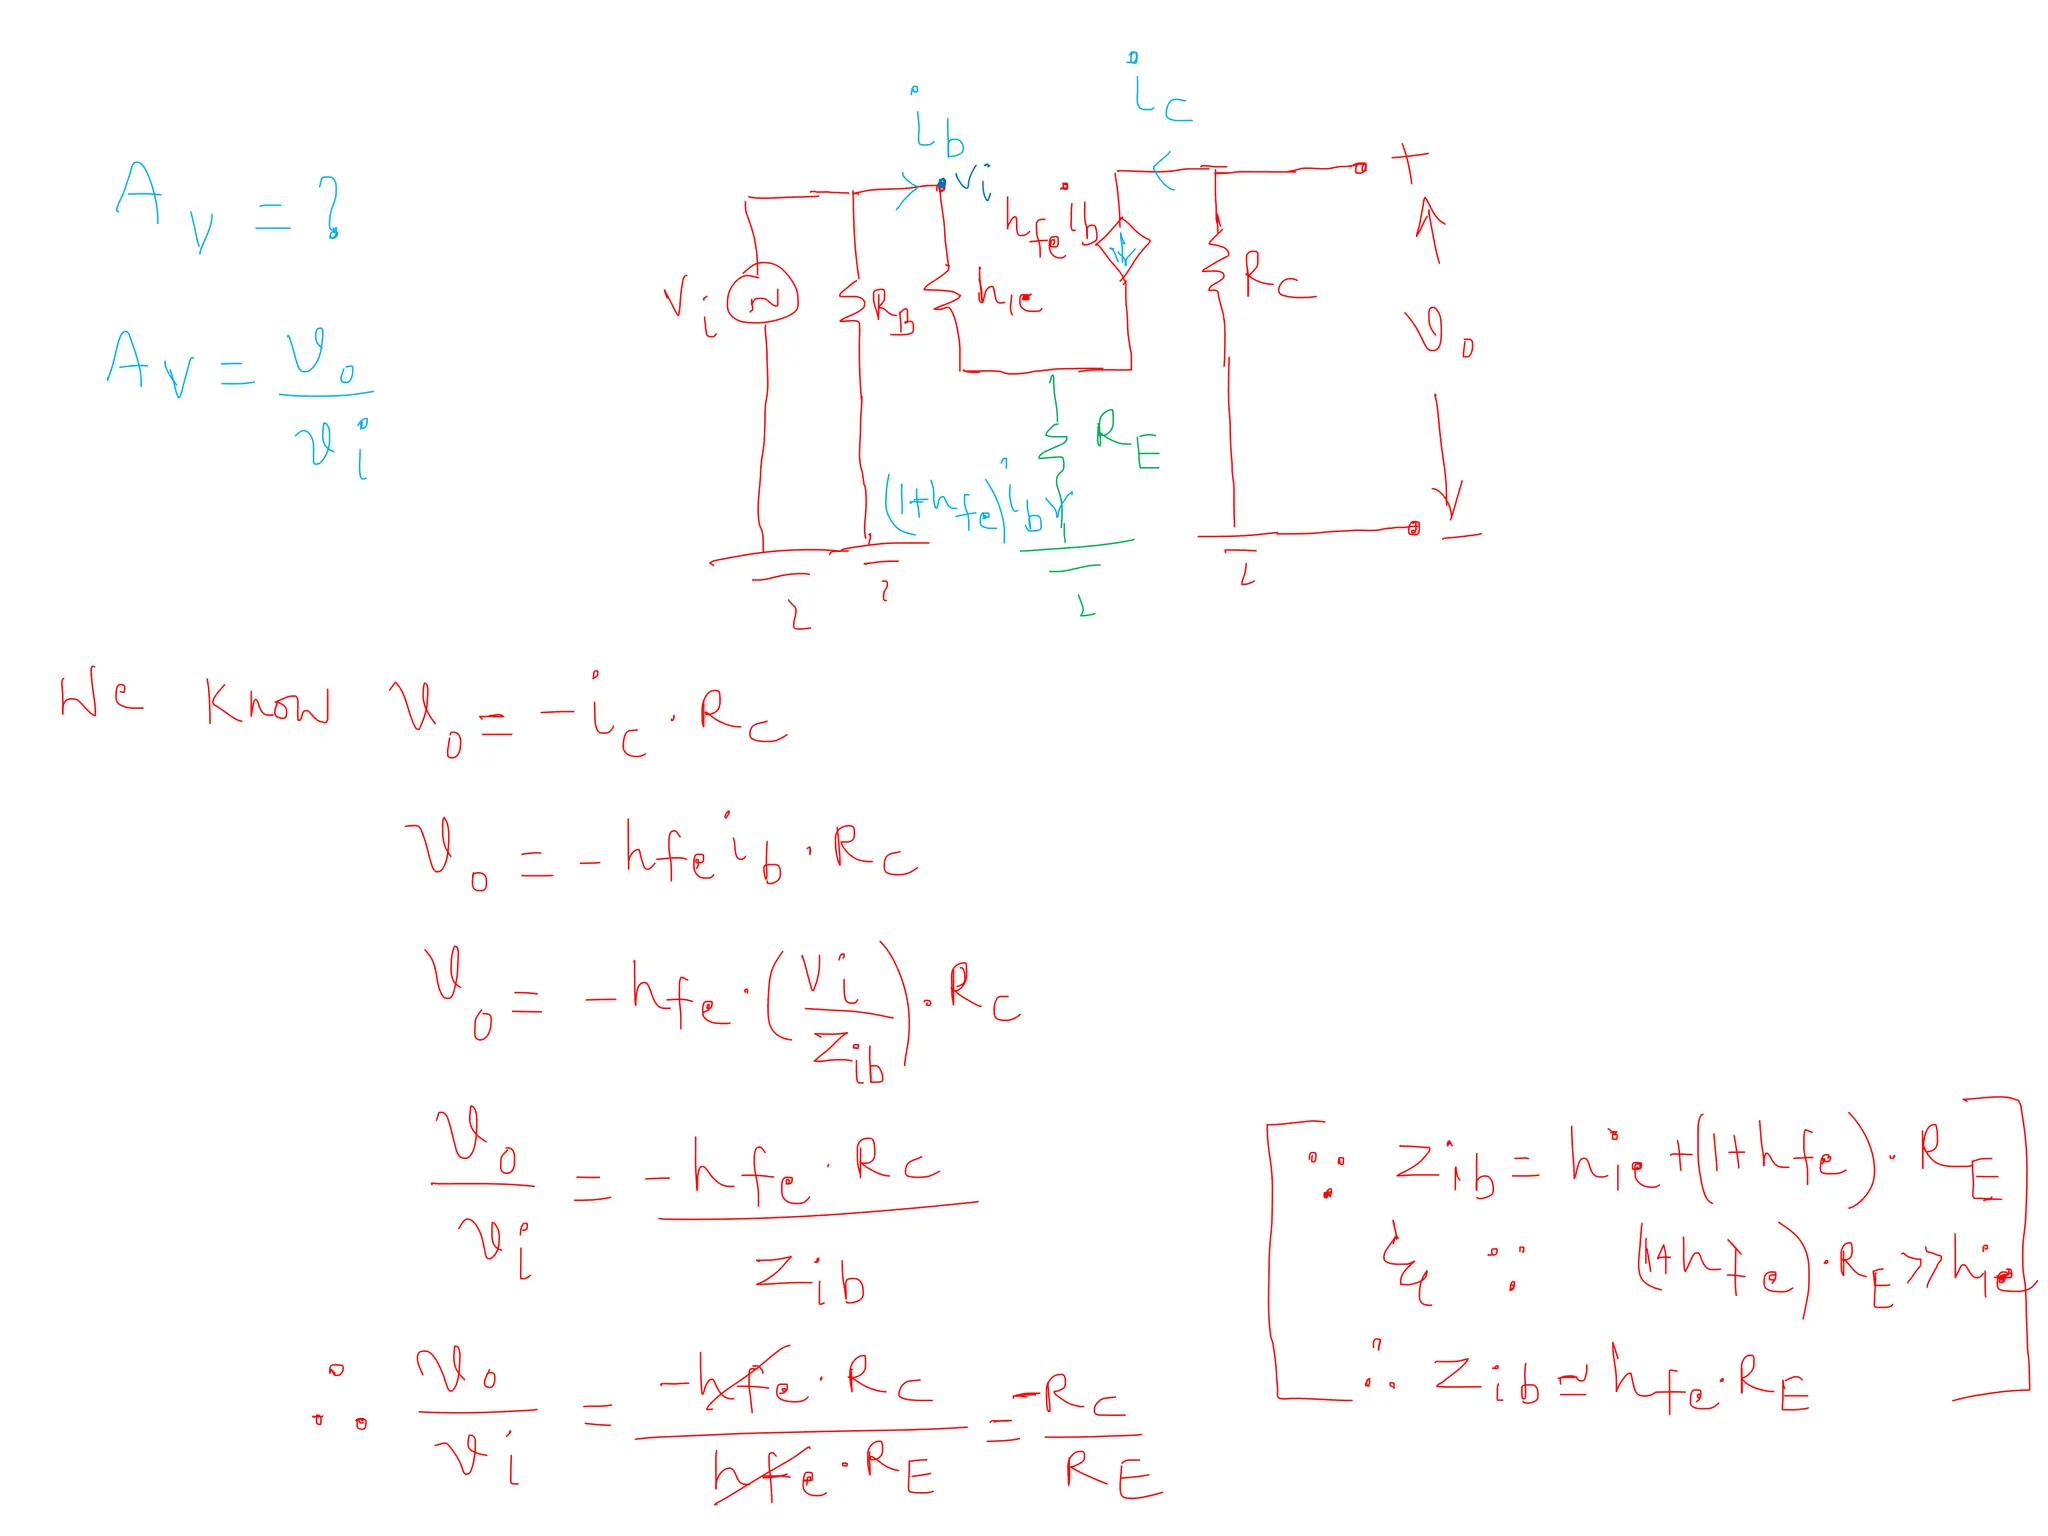 A_V = ?
A_V = v_o / v_i
i_b
i_c
v_i
h_fe i_b
V_i
R_B
h_ie
R_C
+
v_o
-
R_E
(1+h_fe) i_b
We know v_o = -i_c . R_C
v_o = -h_fe i_b . R_C
v_o = -h_fe . (v_i / Z_ib) . R_C
v_o / v_i = -h_fe . R_C / Z_ib
∵ Z_ib = h_ie + (1+h_fe) . R_E
& ∵ (1+h_fe) . R_E >> h_ie
∴ Z_ib ≃ h_fe . R_E
∴ v_o / v_i = -h_fe . R_C / h_fe . R_E = -R_C / R_E